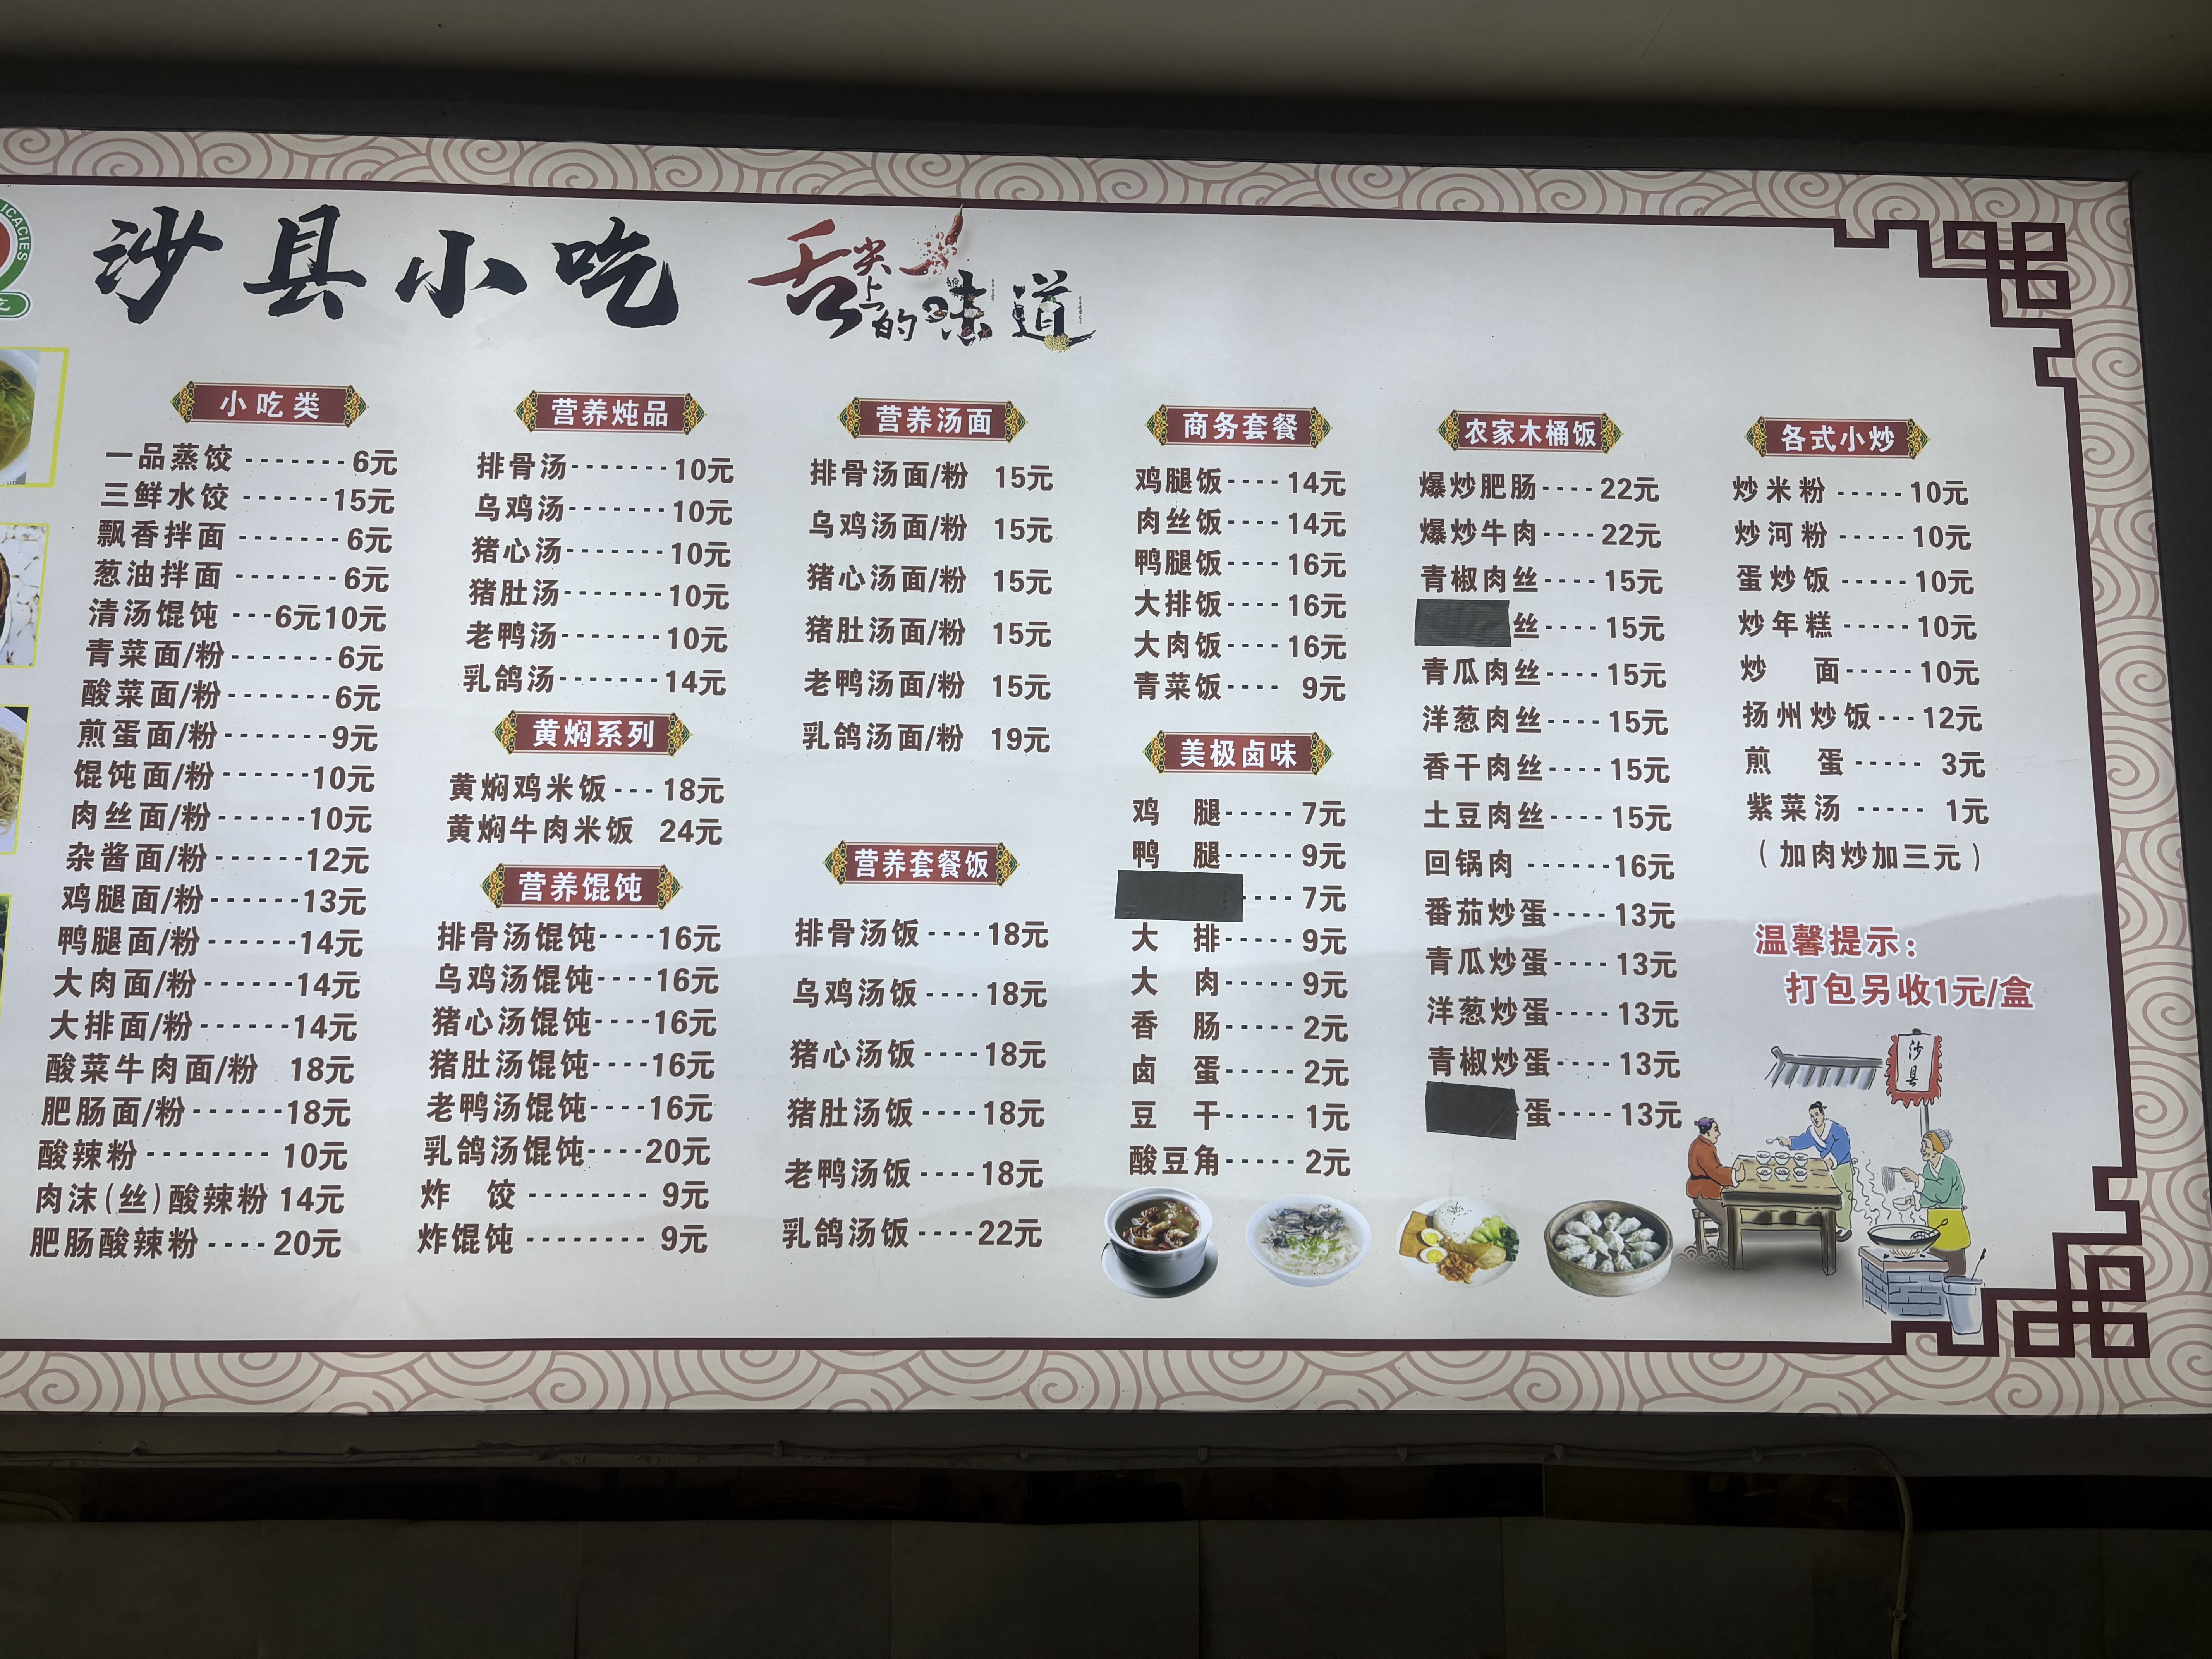 ICACIES
沙县小吃
舌尖上的味道
小吃类
一品蒸饺 ------- 6元
三鲜水饺 ------ 15元
飘香拌面 ------- 6元
葱油拌面 ------- 6元
清汤馄饨 ---6元10元
青菜面/粉------- 6元
酸菜面/粉------- 6元
煎蛋面/粉------- 9元
馄饨面/粉------10元
肉丝面/粉------10元
杂酱面/粉------12元
鸡腿面/粉------13元
鸭腿面/粉------14元
大肉面/粉------14元
大排面/粉------14元
酸菜牛肉面/粉 18元
肥肠面/粉------18元
酸辣粉-------- 10元
肉沫(丝)酸辣粉 14元
肥肠酸辣粉---- 20元
营养炖品
排骨汤------- 10元
乌鸡汤------- 10元
猪心汤------- 10元
猪肚汤------- 10元
老鸭汤------- 10元
乳鸽汤------- 14元
黄焖系列
黄焖鸡米饭--- 18元
黄焖牛肉米饭 24元
营养馄饨
排骨汤馄饨----16元
乌鸡汤馄饨----16元
猪心汤馄饨----16元
猪肚汤馄饨----16元
老鸭汤馄饨----16元
乳鸽汤馄饨----20元
炸 饺 -------- 9元
炸馄饨 -------- 9元
营养汤面
排骨汤面/粉 15元
乌鸡汤面/粉 15元
猪心汤面/粉 15元
猪肚汤面/粉 15元
老鸭汤面/粉 15元
乳鸽汤面/粉 19元
营养套餐饭
排骨汤饭----18元
乌鸡汤饭----18元
猪心汤饭----18元
猪肚汤饭----18元
老鸭汤饭----18元
乳鸽汤饭----22元
商务套餐
鸡腿饭---- 14元
肉丝饭---- 14元
鸭腿饭---- 16元
大排饭---- 16元
大肉饭---- 16元
青菜饭---- 9元
美极卤味
鸡 腿----- 7元
鸭 腿----- 9元
---- 7元
大 排----- 9元
大 肉----- 9元
香 肠----- 2元
卤 蛋----- 2元
豆 干----- 1元
酸豆角----- 2元
农家木桶饭
爆炒肥肠---- 22元
爆炒牛肉---- 22元
青椒肉丝---- 15元
丝---- 15元
青瓜肉丝---- 15元
洋葱肉丝---- 15元
香干肉丝---- 15元
土豆肉丝---- 15元
回锅肉 ------16元
番茄炒蛋---- 13元
青瓜炒蛋---- 13元
洋葱炒蛋---- 13元
青椒炒蛋---- 13元
蛋---- 13元
各式小炒
炒米粉 ----- 10元
炒河粉 ----- 10元
蛋炒饭 ----- 10元
炒年糕 ----- 10元
炒 面----- 10元
扬州炒饭--- 12元
煎 蛋 ----- 3元
紫菜汤 ----- 1元
(加肉炒加三元)
温馨提示:
打包另收1元/盒
沙县